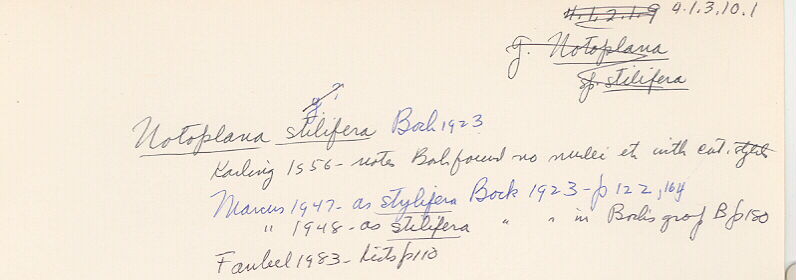 4.1.2.1.9 4.1.3.10.1
g. Notoplana
sp. stilifera
Notoplana stilifera Bock 1923
Karling 1956 - notes Bock found no nuclei etc with cut. stylets
Marcus 1947 - as stylifera Bock 1923 - p 122, 164
" 1948 - as stilifera " " in Bock's group B p 180
Faubel 1983 - lists p 110